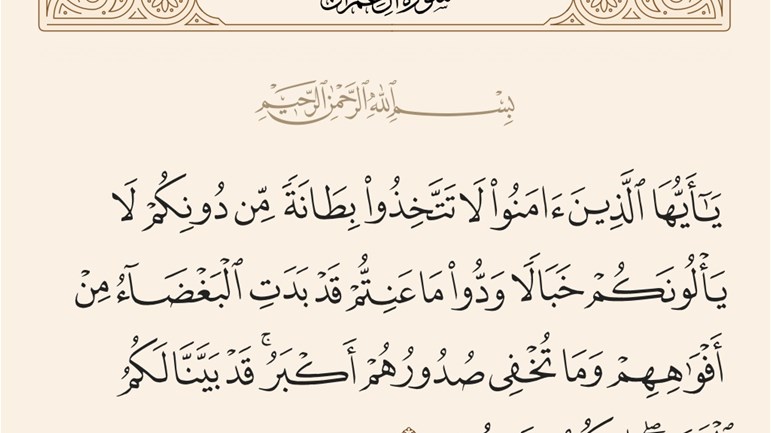 سورة آل عمران
بِسْمِ ٱللَّهِ ٱلرَّحْمَٰنِ ٱلرَّحِيمِ
يَـٰٓأَيُّهَا ٱلَّذِينَ ءَامَنُوا۟ لَا تَتَّخِذُوا۟ بِطَانَةً مِّن دُونِكُمْ لَا
يَأْلُونَكُمْ خَبَالًا وَدُّوا۟ مَا عَنِتُّمْ قَدْ بَدَتِ ٱلْبَغْضَآءُ مِنْ
أَفْوَٰهِهِمْ وَمَا تُخْفِى صُدُورُهُمْ أَكْبَرُ ۚ قَدْ بَيَّنَّا لَكُمُ